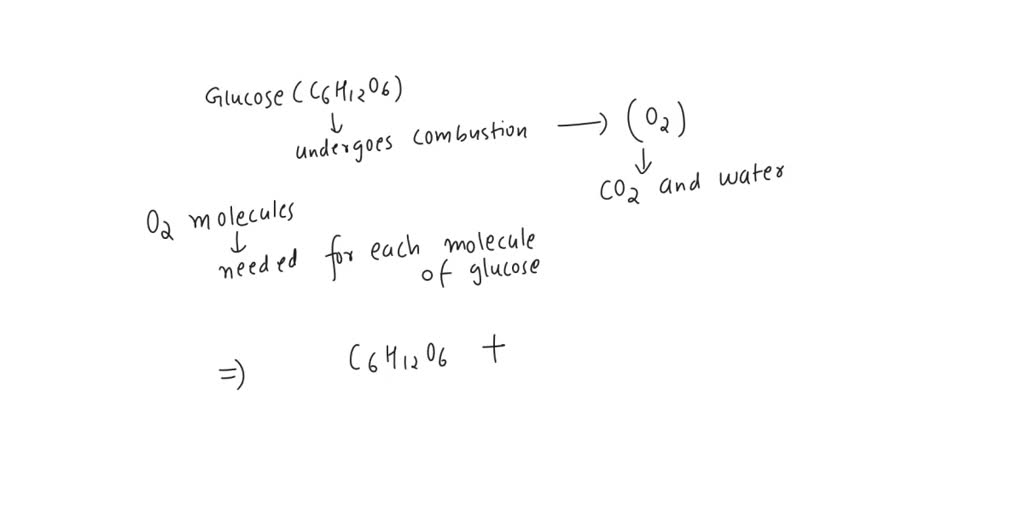 Glucose (C6H12O6)
↓
undergoes combustion → (O2)
↓
CO2 and water
O2 molecules
↓
needed for each molecule
of glucose
⇒ C6H12O6 +